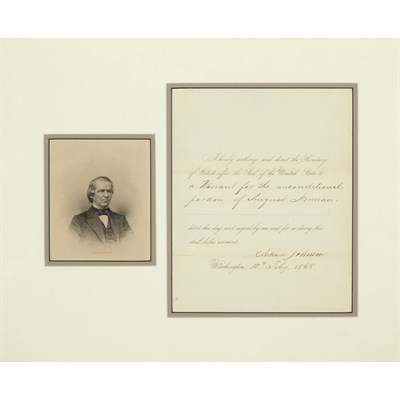 I hereby authorize and direct the Secretary
of State to affix the Seal of the United States to
a Warrant for the unconditional
pardon of August
dated this day, and signed by me and for so doing this
shall be his warrant.
Andrew Johnson
Washington, 10th July, 1868.